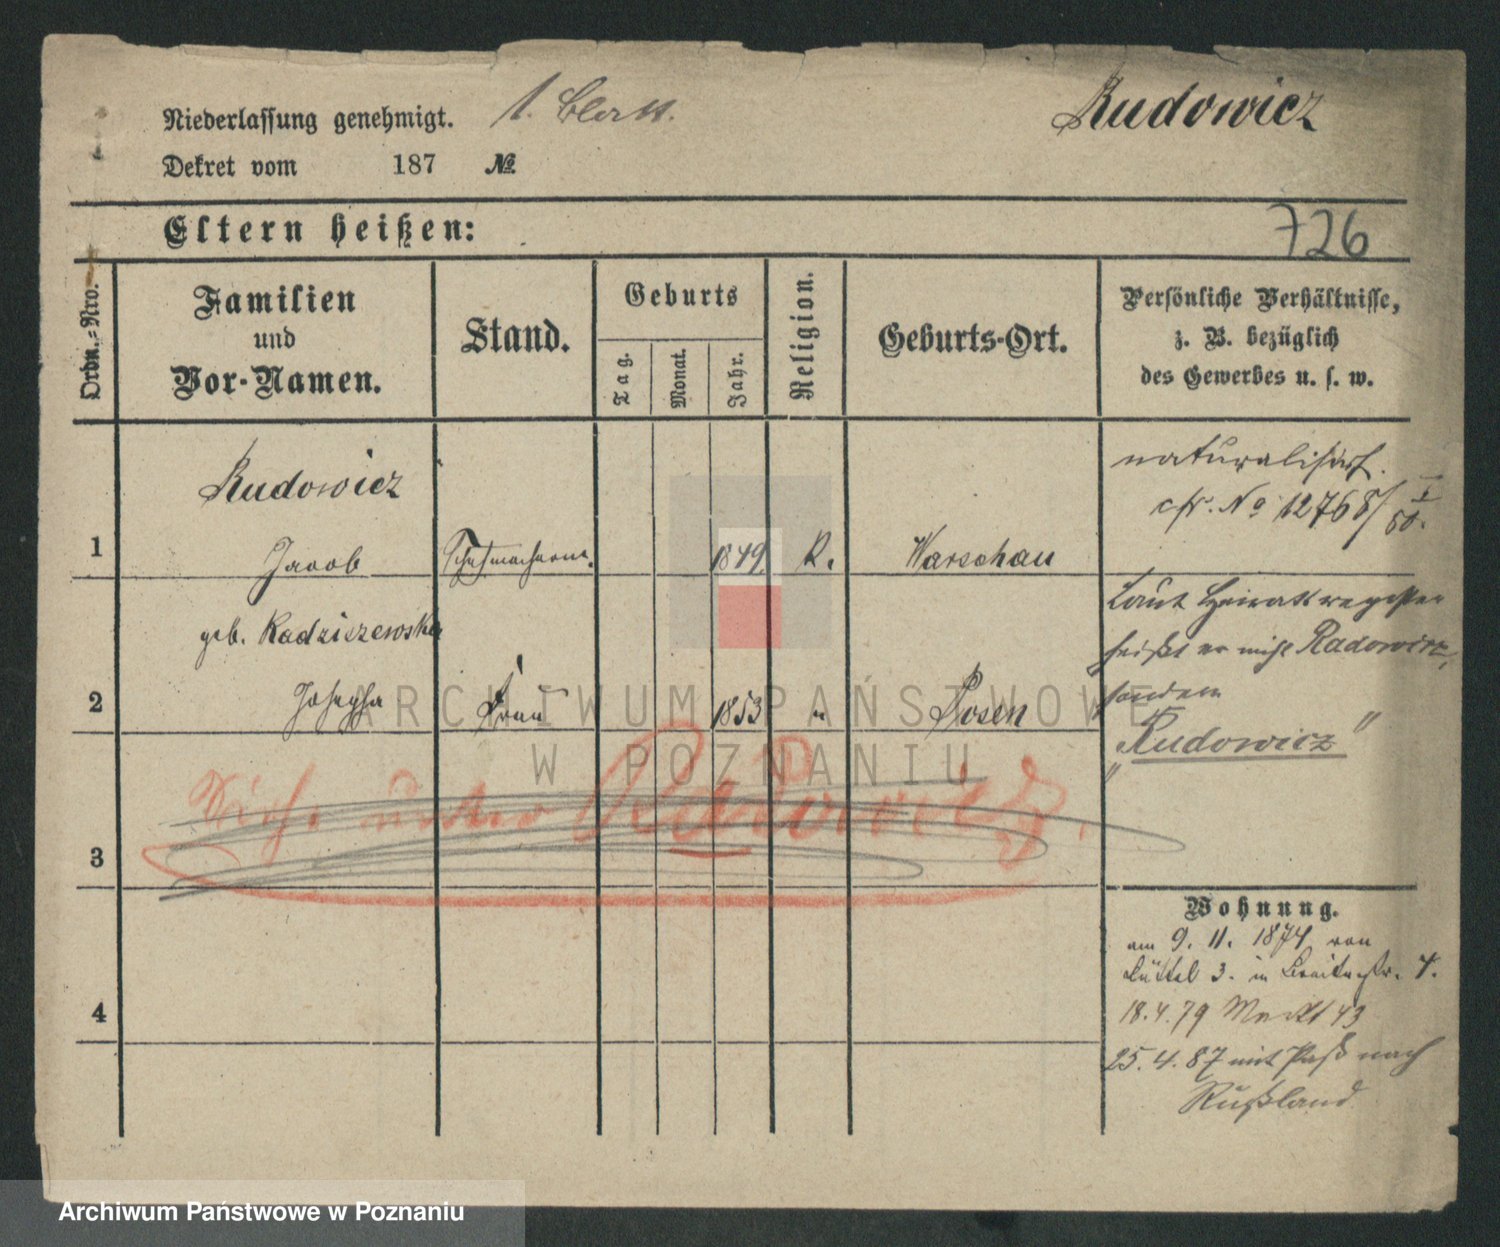 Niederlassung genehmigt. 1. Blatt.
Rudowicz
Dekret vom 187 №
Eltern heißen:
726
Ordn.=Nro.
Familien
und
Vor-Namen.
Stand.
Geburts
Tag.
Monat.
Jahr.
Religion.
Geburts-Ort.
Persönliche Verhältnisse,
z. B. bezüglich
des Gewerbes u. s. w.
Rudowicz
1 Jacob 1849 R. Warschau
naturalisirt.
cfr. No 12768/
geb. Radziszewska
2 Josepha Frau 1853 " Posen
Laut Heirathsregister
heißt er nicht Radowicz,
sondern
"Rudowicz"
Siehe unter Radowicz.
3
4
Wohnung.
am 9. 11. 1874 von
Büttel 3. in Breitestr. 4.
18.4.79 Markt 43
25.4.87 mit Paß nach
Rußland
ARCHIWUM PAŃSTWOWE
W POZNANIU
Archiwum Państwowe w Poznaniu